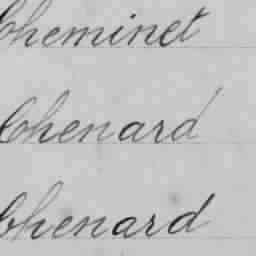 Cheminet
Chenard
Chenard